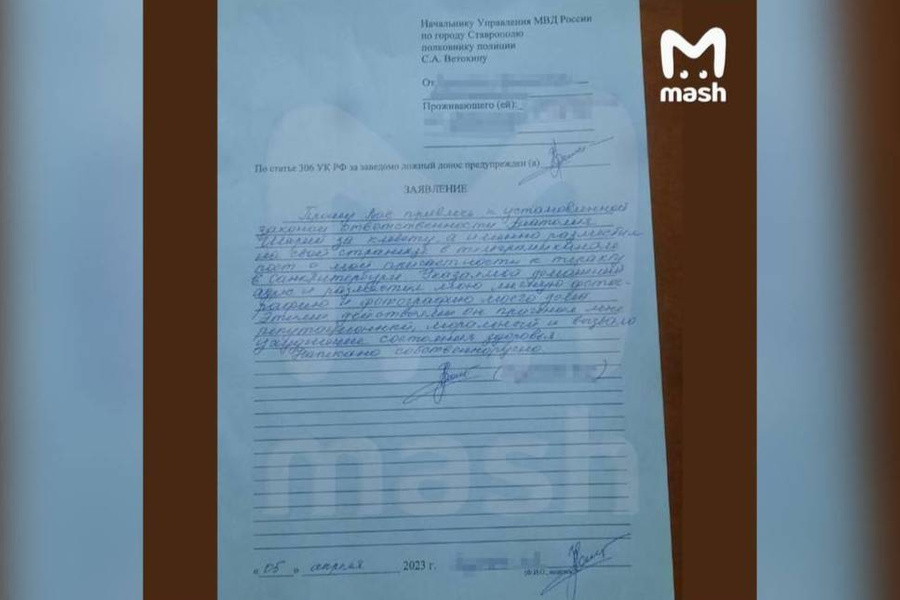 Начальнику Управления МВД России
по городу Ставрополю
полковнику полиции
С.А. Ветохину
От
Проживающего (ей):
По статье 306 УК РФ за заведомо ложный донос предупрежден (а)
ЗАЯВЛЕНИЕ
Прошу Вас привлечь к установленной
законом ответственности Анатолия
Шария за клевету а именно разместил
на своей странице в телеграмм канале
пост о моей причастности к теракту
в Санкт-Петербурге. Указал мой домашний
адрес и разместил мою личную фотог-
рафию и фотографию моего дома
Этими действиями он причинил мне
репутационный, моральный и вызвало
ухудшение состояния здоровья
Написано собственноручно
« 05 » апреля 2023 г.
mash
mash